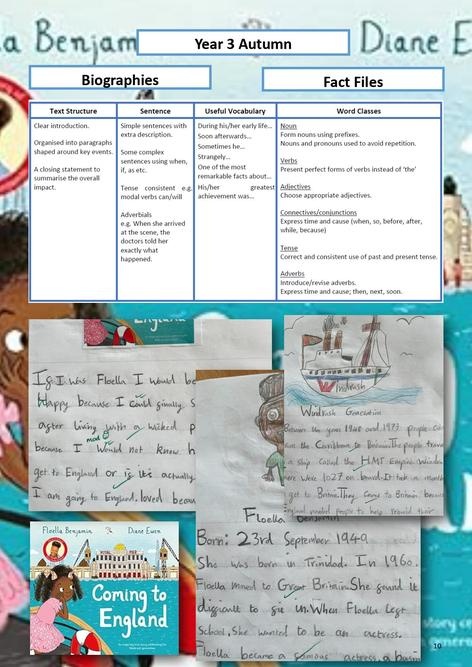 la Benjam
Diane E
Year 3 Autumn
Biographies
Fact Files
Text Structure
Clear introduction.
Organised into paragraphs
shaped around key events.
A closing statement to
summarise the overall
impact.
Sentence
Simple sentences with
extra description.
Some complex
sentences using when,
if, as etc.
Tense consistent e.g.
modal verbs can/will
Adverbials
e.g. When she arrived
at the scene, the
doctors told her
exactly what
happened.
Useful Vocabulary
During his/her early life...
Soon afterwards...
Sometimes he...
Strangely...
One of the most
remarkable facts about...
His/her greatest
achievement was...
Word Classes
Noun
Form nouns using prefixes.
Nouns and pronouns used to avoid repetition.
Verbs
Present perfect forms of verbs instead of 'the'
Adjectives
Choose appropriate adjectives.
Connectives/conjunctions
Express time and cause (when, so, before, after,
while, because)
Tense
Correct and consistent use of past and present tense.
Adverbs
Introduce/revise adverbs.
Express time and cause; then, next, soon.
England
If I was Floella I would be
Happy because I could finally S
after living with a wiked p
because I Would not know h
get to England or is it's actually
I am going to England. loved becau
Windrush
Windrush Generation
Between the year 1948 and 1973 people
the Caribbean to Britain. The people trave
a ship called the HMT Empire Windru
here were 1027 on board. It took
get to Britain. They Came to Britain because
England people to help
Floella Benjamin
Born: 23rd September 1949
She was born in Trinidad. In 1960.
Floella moved to Great Britain. She found it
difficult to fit in. When Floella left
School, She wanted to be an actress.
Floella became a famous actress, a
Floella Benjamin
Diane Ewen
Coming to
England
10